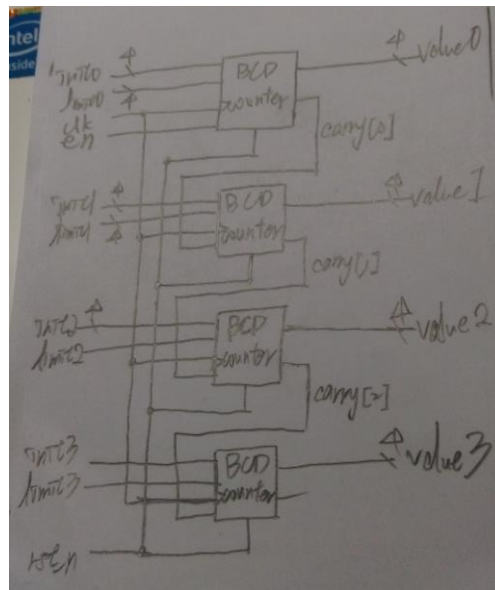 intel
inside
init0
limit0
clk
en
BCD
counter
4
4
4
value0
carry[0]
init1
limit1
BCD
counter
4
4
4
value1
carry[1]
init2
limit2
BCD
counter
4
4
value2
carry[2]
init3
limit3
BCD
counter
4
value3
rst_n